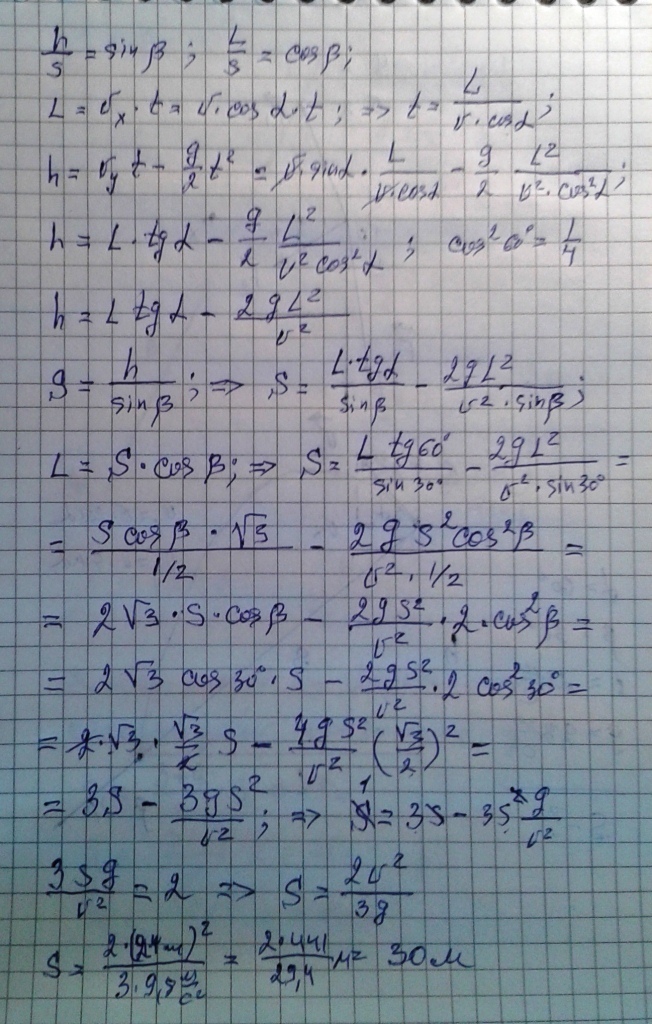 h/s = sin β; L/s = cos β;
L = υₓ · t = υ · cos α · t; => t = L/(υ · cos α);
h = υᵧ t − g/2 t² = υ · sin α · L/(υ · cos α) − g/2 L²/(υ² · cos² α);
h = L · tg α − g/2 L²/(υ² cos² α); cos² 60° = 1/4
h = L tg α − 2gL²/υ²
S = h/sin β; => S = L · tg α/sin β − 2gL²/(υ² · sin β);
L = S · cos β; => S = L tg 60°/sin 30° − 2gL²/(υ² · sin 30°) =
= S cos β · √3/(1/2) − 2g S² cos² β/(υ² · 1/2) =
= 2√3 · S · cos β − 2gS²/υ² · 2 · cos² β =
= 2√3 cos 30° · S − 2gS²/υ² · 2 cos² 30° =
= 2 · √3 · √3/2 S − 4gS²/υ² (√3/2)² =
= 3S − 3gS²/υ²; => 1 = 3S − 3S² g/υ²
3Sg/υ² = 2 => S = 2υ²/3g
S = 2 · (21 м/с)²/(3 · 9,8 м/с²) = 2 · 441/29,4 м = 30 м